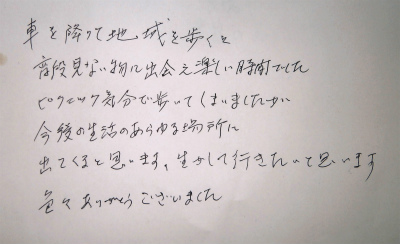 車を降りて地域を歩くと
普段見ない物に出会え楽しい時間でした
ピクニック気分で歩いてしまいましたが
今後の生活のあらゆる場所に
出てくると思います。生かして行きたいと思います
色々ありがとうございました